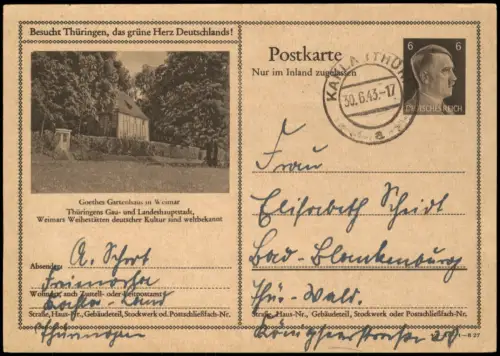 Besucht Thüringen, das grüne Herz Deutschlands!
Goethes Gartenhaus in Weimar
Thüringens Gau- und Landeshauptstadt,
Weimars Weihestätten deutscher Kultur sind weltbekannt
A. Schort
Absender:
Wohnort, auch Zustell- oder Leitpostamt
Straße, Haus-Nr., Gebäudeteil, Stockwerk od. Postschließfach-Nr.
Thüringen
Postkarte
Nur im Inland zugelassen
KAHLA (THÜR)
30.6.43.-17
a
6 6
DEUTSCHES REICH
Frau
Elisabeth Scheidt
Bad-Blankenburg
Thür-Wald.
Straße, Haus-Nr., Gebäudeteil, Stockwerk oder Postschließfach-Nr.
Königseerstrasse